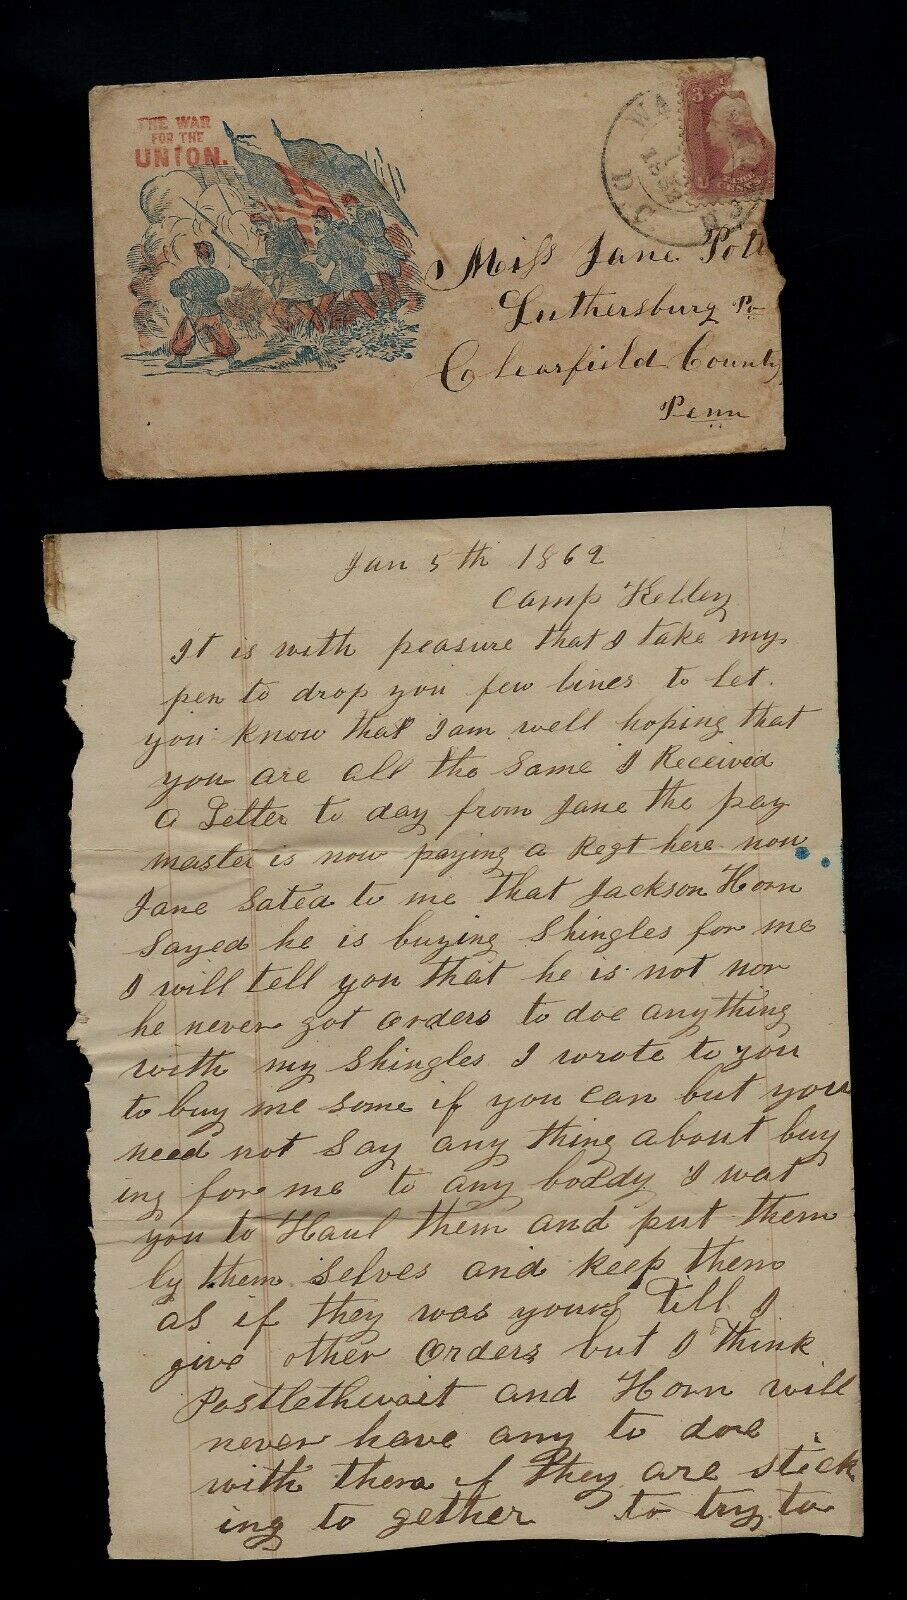 THE WAR
FOR THE
UNION.
3
Miss Jane
Luthersburg Po
Clearfield County
Penn
Jan 5th 1862
Camp Kelley
It is with peasure that I take my
pen to drop you few lines to let
you know that I am well hoping that
you are all the same I Received
a Letter to day from Jane the pay
master is now paying a Regt here now
Jane Sated to me that Jackson Horn
Sayed he is buying Shingles for me
I will tell you that he is not nor
he never got orders to doe anything
with my Shingles I wrote to you
to buy me some if you can but you
need not Say any thing about buy
ing for me to any boddy I wat
you to Haul them and put them
by them selves and keep them
as if they was yours till I
give other Orders but I think
Postlethwait and Horn will
never have any to doe
with them if they are stick
ing to gether to try to